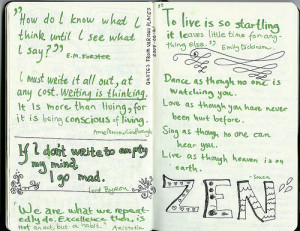 "How do I know what I
think until I see what
I say?"
E.M. Forster
I must write it all out, at
any cost. Writing is thinking.
It is more than living, for
it is being conscious of living.
Anne Morrow Lindbergh
If I don't write to empty
my mind,
I go mad.
Lord Byron
"We are what we repeat-
edly do. Excellence then, is
not an act, but a habit."
Aristotle
QUOTES FROM VARIOUS PLACES
"To live is so startling
it leaves little time for any-
thing else."
Emily Dickinson
Dance as though no one is
watching you.
Love as though you have never
been hurt before.
Sing as though no one can
hear you.
Live as though heaven is on
earth.
- Souza
ZEN